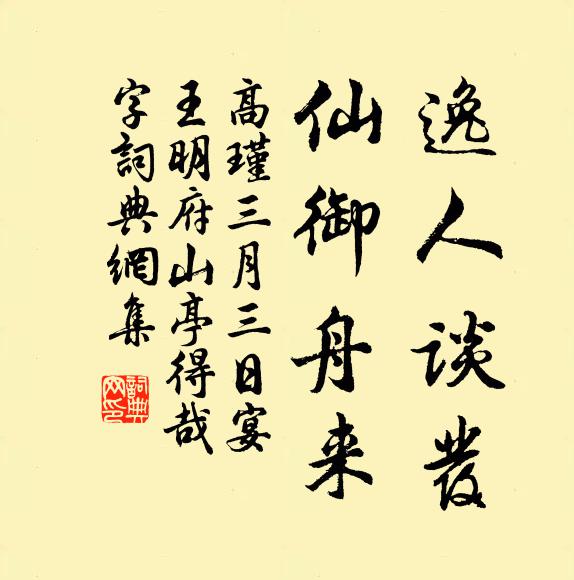 逸人談發
仙御舟来
高瑾三月三日宴
王明府山亭得哉
字詞典網集
詞典網印